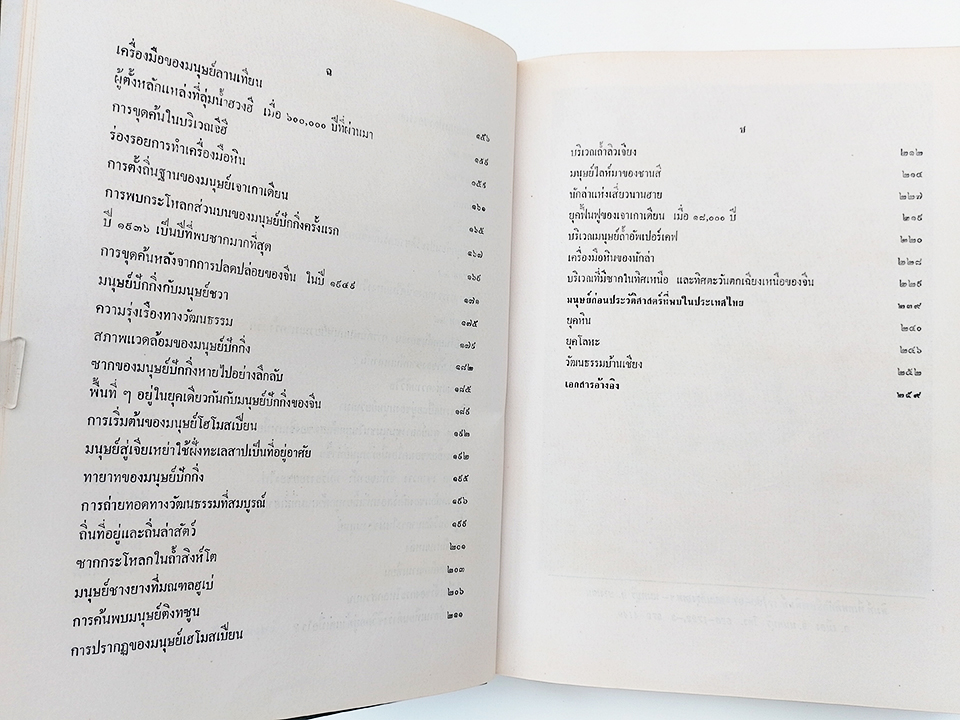 ฉ
เครื่องมือของมนุษย์ลานเทียน ๑๕๖
ผู้ตั้งหลักแหล่งที่ลุ่มน้ำฮวงฮี เมื่อ ๖๐๐,๐๐๐ ปีที่ผ่านมา ๑๕๙
การขุดค้นในบริเวณจีฮี ๑๕๙
ร่องรอยการทำเครื่องมือหิน ๑๖๑
การตั้งถิ่นฐานของมนุษย์เจาเกาเตียน ๑๖๕
การพบกระโหลกส่วนบนของมนุษย์ปักกิ่งครั้งแรก ๑๖๗
ปี ๑๙๓๖ เป็นปีที่พบซากมากที่สุด ๑๖๙
การขุดค้นหลังจากการปลดปล่อยของจีน ในปี ๑๙๔๙ ๑๗๑
มนุษย์ปักกิ่งกับมนุษย์ชวา ๑๗๕
ความรุ่งเรืองทางวัฒนธรรม ๑๗๙
สภาพแวดล้อมของมนุษย์ปักกิ่ง ๑๘๒
ซากของมนุษย์ปักกิ่งหายไปอย่างลึกลับ ๑๘๕
พื้นที่ ๆ อยู่ในยุคเดียวกันกับมนุษย์ปักกิ่งของจีน ๑๘๙
การเริ่มต้นของมนุษย์โฮโมสเปียน ๑๙๒
มนุษย์สู่เจียเหย่าใช้ฝั่งทะเลสาปเป็นที่อยู่อาศัย ๑๙๒
ทายาทของมนุษย์ปักกิ่ง ๑๙๕
การถ่ายทอดทางวัฒนธรรมที่สมบูรณ์ ๑๙๖
ถิ่นที่อยู่และถิ่นล่าสัตว์ ๑๙๙
ซากกระโหลกในถ้ำสิงห์โต ๒๐๑
มนุษย์ชางยางที่มณฑลฮูเบ่ ๒๐๓
การค้นพบมนุษย์ติงทซูน ๒๐๖
การปรากฏของมนุษย์เฮโมสเปียน ๒๑๑
ช
บริเวณถ้ำลิวเจียง ๒๑๒
มนุษย์ไลห์มาของชานสี ๒๑๔
นักล่าแห่งเสี่ยวนานฮาย ๒๒๗
ยุคฟื้นฟูของเจาเกาเตียน เมื่อ ๑๘,๐๐๐ ปี ๒๑๙
บริเวณมนุษย์ถ้ำอัพเปอร์เคฟ ๒๒๐
เครื่องมือหินของนักล่า ๒๒๘
บริเวณที่มีซากในทิศเหนือ และทิศตะวันตกเฉียงเหนือของจีน ๒๒๙
มนุษย์ก่อนประวัติศาสตร์ที่พบในประเทศไทย ๒๓๙
ยุคหิน ๒๔๐
ยุคโลหะ ๒๔๖
วัฒนธรรมบ้านเชียง ๒๕๒
เอกสารอ้างอิง ๒๕๙